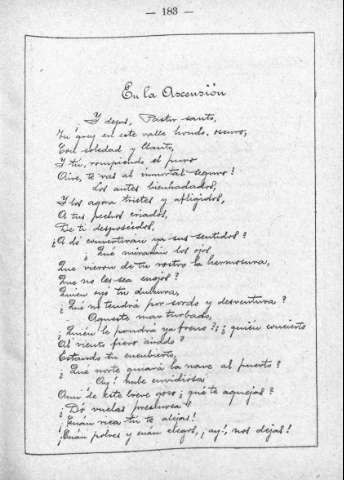 — 183 —
En la Ascensión
Y dejas, Pastor santo,
Tu grey en este valle hondo, oscuro,
Con soledad y llanto,
Y tú, rompiendo el puro
Aire, te vas al inmortal seguro!
Los antes bienhadados,
Y los agora tristes y afligidos,
A tus pechos criados,
De ti desposeídos,
¿A dó convertirán ya sus sentidos?
¿Qué mirarán los ojos
Que vieron de tu rostro la hermosura,
Que no les sea enojos?
Quien oyó tu dulzura,
¿Qué no tendrá por sordo y desventura?
Aqueste mar turbado,
¿Quién le pondrá ya freno? ¿quién concierto
Al viento fiero airado?
Estando tu encubierto,
¿Qué norte guiará la nave al puerto?
Ay! nube envidiosa
Aun de este breve gozo ¿qué te aquejas?
¿Dó vuelas presurosa?
¡Cuán rica tú te alejas!
¡Cuán pobres y cuán ciegos, ¡ay!, nos dejas!